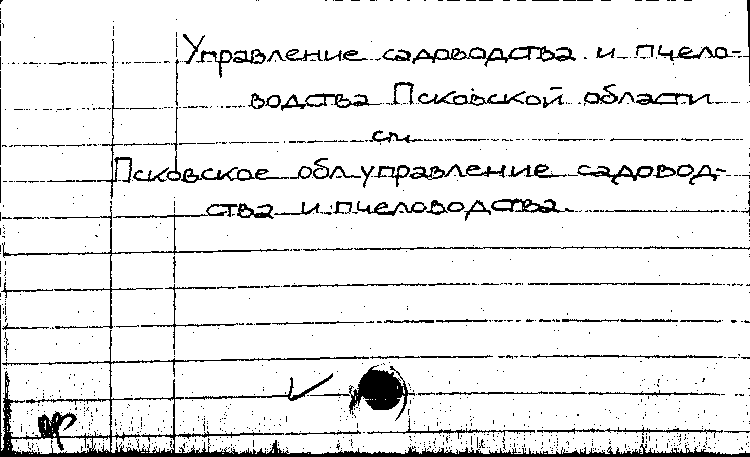 Управление садоводства и пчело-
водства Псковской области
см.
Псковское обл. управление садовод-
ства и пчеловодства.